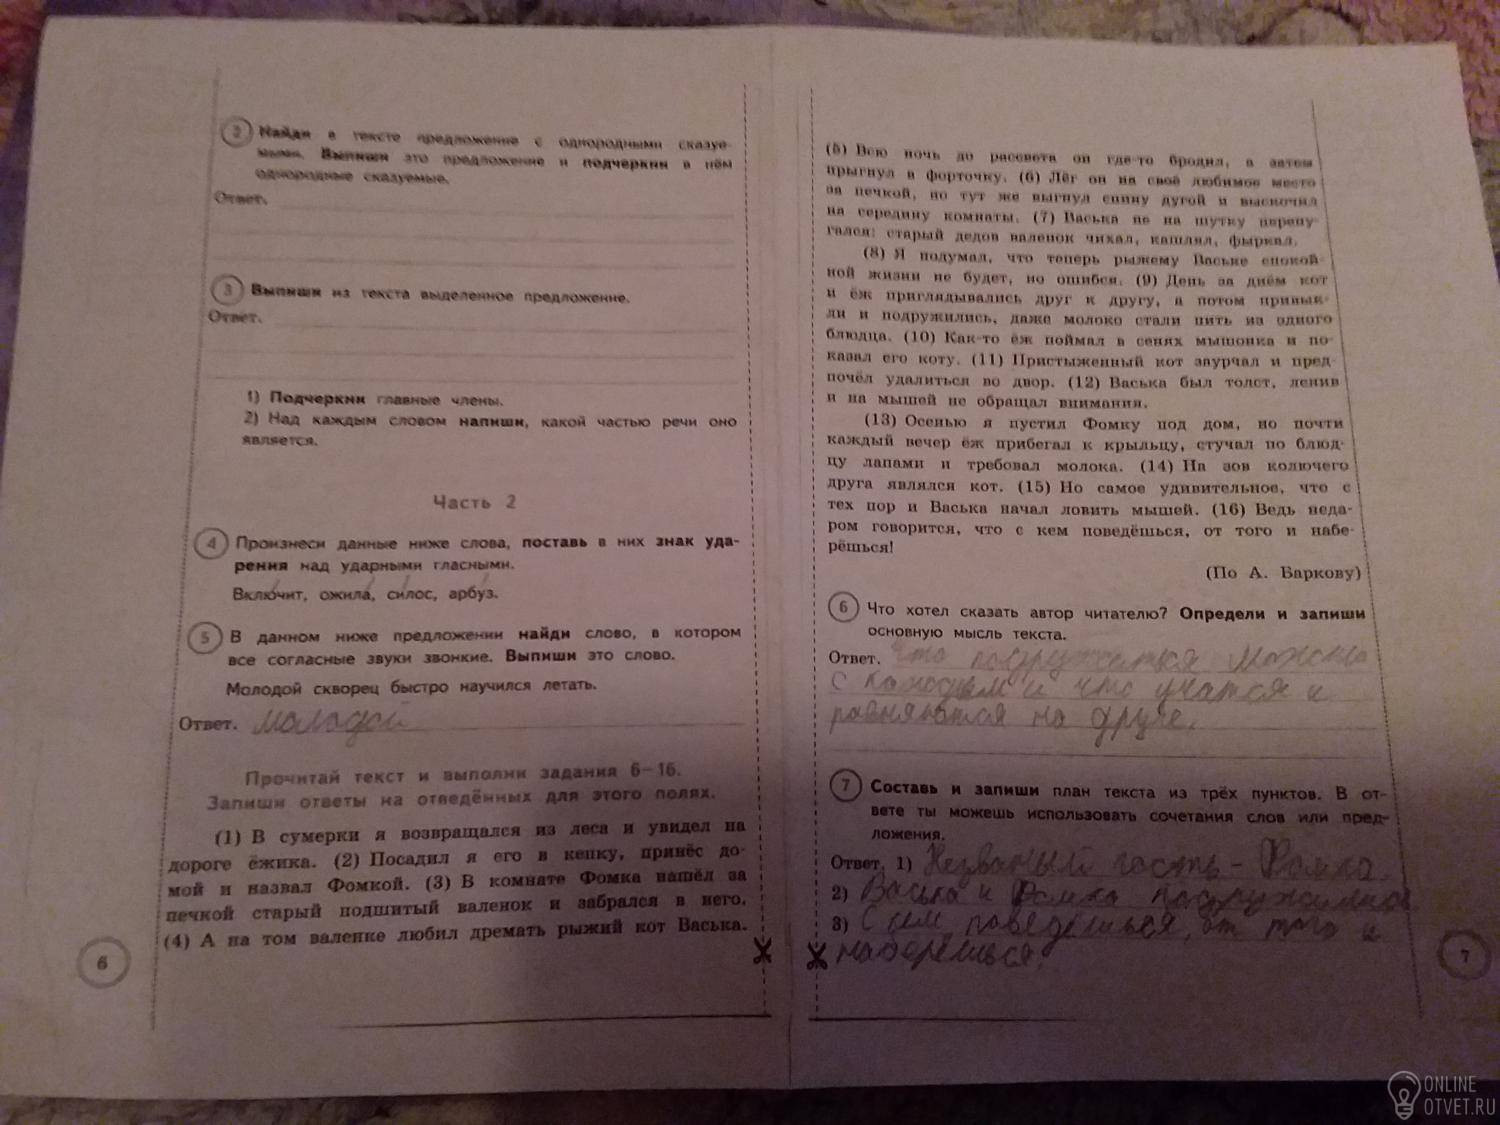 2 Найди в тексте предложение с однородными сказуе-
мыми. Выпиши это предложение и подчеркни в нём
однородные сказуемые.
Ответ.
3 Выпиши из текста выделенное предложение.
Ответ.
1) Подчеркни главные члены.
2) Над каждым словом напиши, какой частью речи оно
является.
Часть 2
4 Произнеси данные ниже слова, поставь в них знак уда-
рения над ударными гласными.
Включит, ожила, силос, арбуз.
5 В данном ниже предложении найди слово, в котором
все согласные звуки звонкие. Выпиши это слово.
Молодой скворец быстро научился летать.
Ответ. молодой
Прочитай текст и выполни задания 6–16.
Запиши ответы на отведённых для этого полях.
(1) В сумерки я возвращался из леса и увидел на
дороге ёжика. (2) Посадил я его в кепку, принёс до-
мой и назвал Фомкой. (3) В комнате Фомка нашёл за
печкой старый подшитый валенок и забрался в него.
(4) А на том валенке любил дремать рыжий кот Васька.
6
(5) Всю ночь до рассвета он где-то бродил, а затем
прыгнул в форточку. (6) Лёг он на своё любимое место
за печкой, но тут же выгнул спину дугой и выскочил
на середину комнаты. (7) Васька не на шутку перепу-
гался: старый дедов валенок чихал, кашлял, фыркал.
(8) Я подумал, что теперь рыжему Ваське спокой-
ной жизни не будет, но ошибся. (9) День за днём кот
и ёж приглядывались друг к другу, а потом привык-
ли и подружились, даже молоко стали пить из одного
блюдца. (10) Как-то ёж поймал в сенях мышонка и по-
казал его коту. (11) Пристыженный кот заурчал и пред-
почёл удалиться во двор. (12) Васька был толст, ленив
и на мышей не обращал внимания.
(13) Осенью я пустил Фомку под дом, но почти
каждый вечер ёж прибегал к крыльцу, стучал по блюд-
цу лапами и требовал молока. (14) На зов колючего
друга являлся кот. (15) Но самое удивительное, что с
тех пор и Васька начал ловить мышей. (16) Ведь неда-
ром говорится, что с кем поведёшься, от того и набе-
рёшься!
(По А. Баркову)
6 Что хотел сказать автор читателю? Определи и запиши
основную мысль текста.
Ответ. Что подружиться можно
с каждым и что учатся и
равняются на друге.
7 Составь и запиши план текста из трёх пунктов. В от-
вете ты можешь использовать сочетания слов или пред-
ложения.
Ответ. 1) Незваный гость - Фомка.
2) Васька и Фомка подружились
3) С кем поведёшься, от того и
наберёшься.
7
ONLINE
OTVET.RU